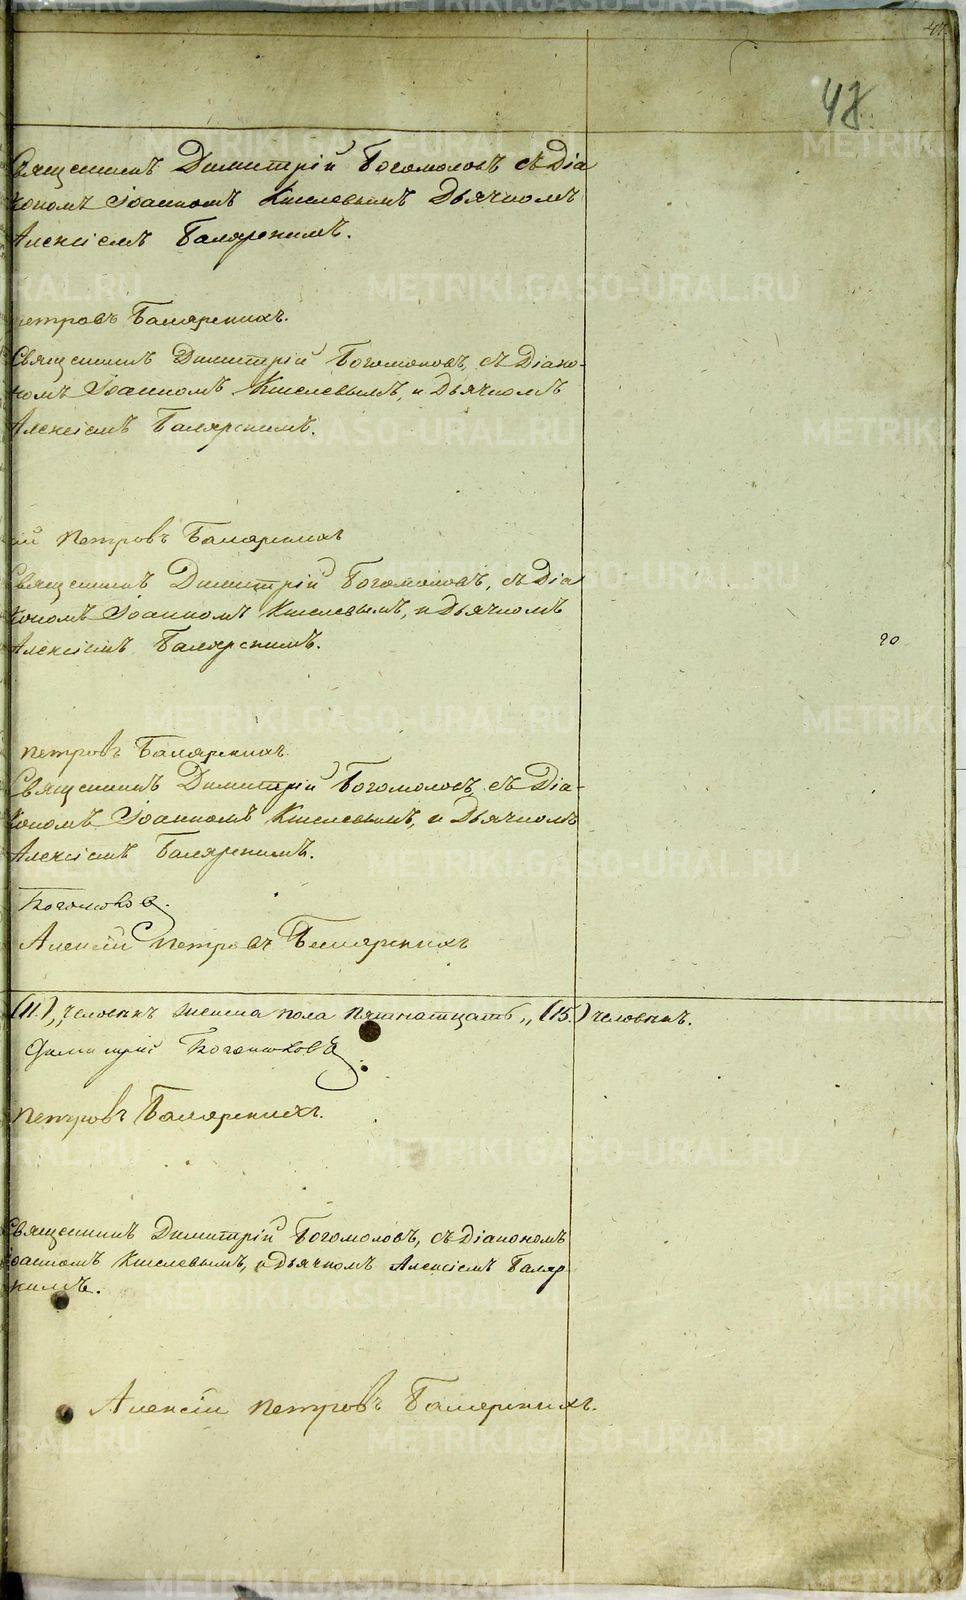 48
Священникъ Димитрій Богомоловъ съ Діа
кономъ Іоанномъ Киселевымъ Дьячкомъ
Алексіемъ Баляркинымъ.
Петровъ Баляркинъ.
Священникъ Димитрій Богомоловъ, съ Діако-
номъ Іоанномъ Киселевымъ, и Дьячкомъ
Алексіемъ
Петровъ
Священникъ Димитрій Богомоловъ, съ Діа
кономъ Іоанномъ Киселевымъ, и Дьячкомъ
Алексіемъ
90
Петровъ
Священникъ Димитрій Богомоловъ, съ Діа-
кономъ Іоанномъ Киселевымъ, и Дьячкомъ
Алексіемъ
Богомоловъ.
Алексій Петровъ
(11.) „человѣкъ женска пола пятнатцать „ (15.) человѣкъ.
Димитрій Богомоловъ
Петровъ
Священникъ Димитрій Богомоловъ, съ Діакономъ
Іоанномъ Киселевымъ, и Дьячкомъ Алексіемъ
Алексій Петровъ
METRIKI.GASO-URAL.RU